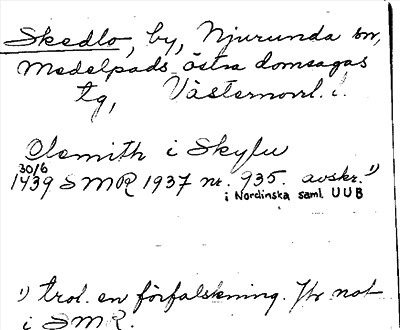 Skedlo, by, Njurunda sn,
Medelpads östra domsagas
tg, Västernorrl. l.
Olsmith i Skylu
30/6
1439 SMR 1937 nr. 935. avskr. 1)
i Nordinska saml. UUB
1) trol. en förfalskning. Jfr not
i SMR.